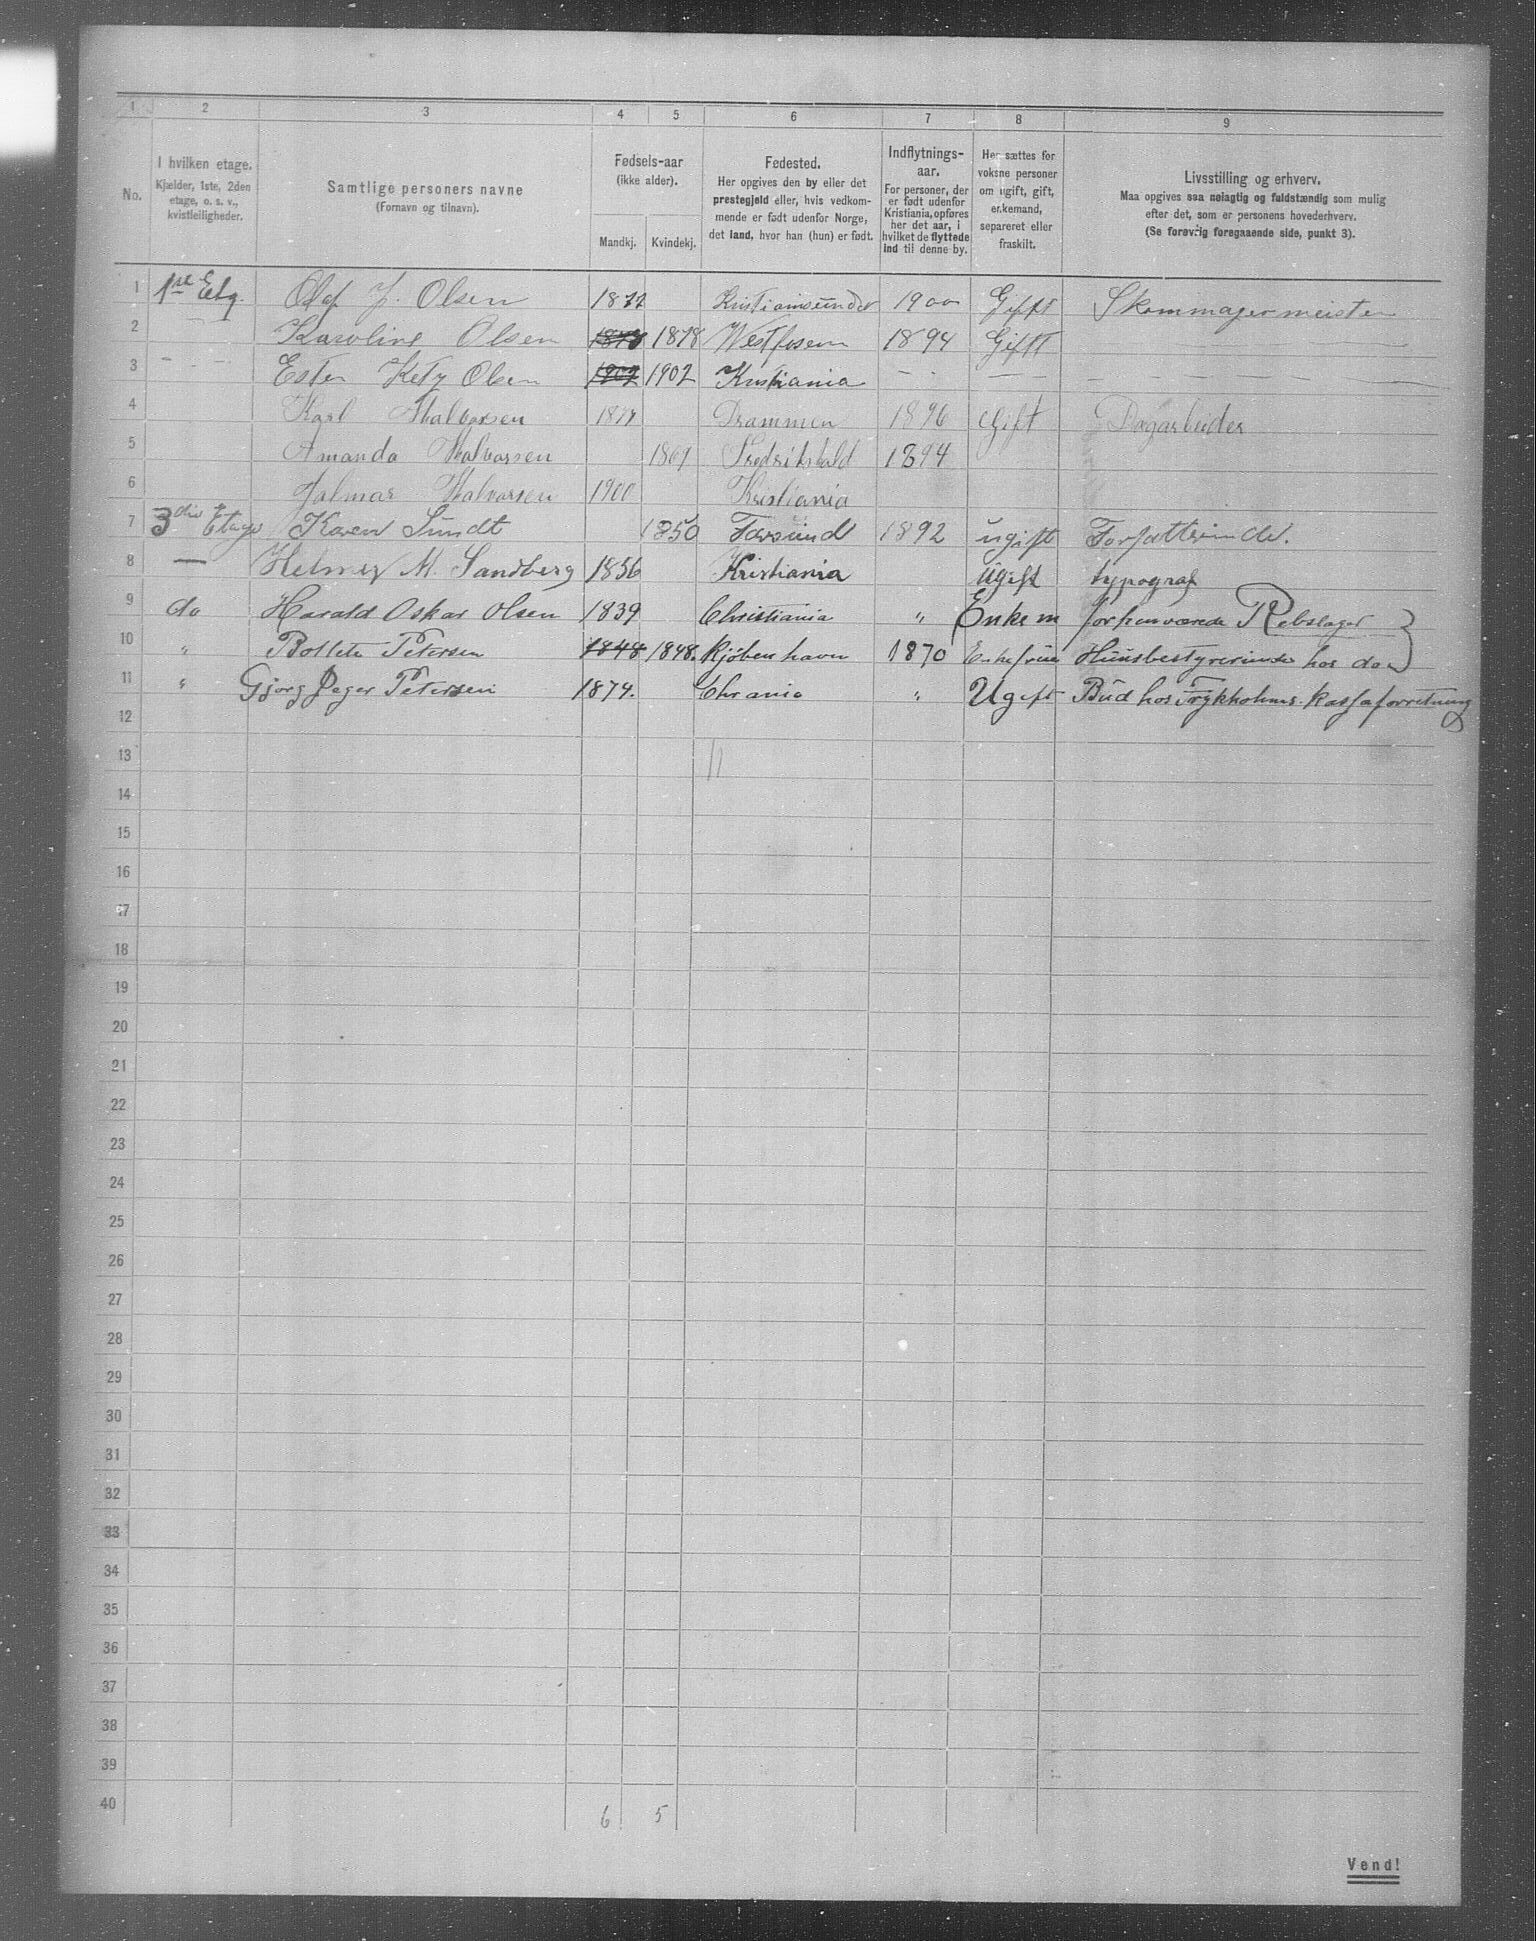 1 2 3 4 5 6 7 8 9
No.
I hvilken etage.
Kjælder, 1ste, 2den
etage, o. s. v.,
kvistleiligheder.
Samtlige personers navne
(Fornavn og tilnavn).
Fødsels-aar
(ikke alder).
Mandkj. Kvindekj.
Fødested.
Her opgives den by eller det
prestegjeld eller, hvis vedkom-
mende er født udenfor Norge,
det land, hvor han (hun) er født.
Indflytnings-
aar.
For personer, der
er født udenfor
Kristiania, opføres
her det aar, i
hvilket de flyttede
ind til denne by.
Her sættes for
voksne personer
om ugift, gift,
enkemand,
separeret eller
fraskilt.
Livsstilling og erhverv.
Maa opgives saa nøiagtig og fuldstændig som mulig
efter det, som er personens hovederhverv.
(Se forøvrig foregaaende side, punkt 3).
1 1ste Etg. Olaf J. Olsen 1877 Kristiansund 1900 Gift Skommagermeister
2 — Karoline Olsen 1878 1878 Westfosem 1894 Gift —
3 - - Ester Kety Olsen 1902 1902 Kristiania - - — — — —
4 Karl Halvorsen Drammen 1896 Gift Dagarbeider
5 Amanda Halvorsen Fredrikshald 1894
6 Hjalmar Halvorsen 1900 Kristiania
7 3die Etage Karen Sundt 1850 Farsund 1892 ugift Forfatterinde.
8 — Helmer M. Sandberg 1856 Kristiania Ugift typograf
9 do Harald Oskar Olsen 1839 Christiania " Enkem forhenværede Rebslager
10 " Bollete Petersen 1848 1848. Kjøbenhavn 1870 Enkefrue Huusbestyrerinde hos den
11 " Gjørg Peger Petersen 1874. Chrania " Ugift Bud hos Trykholms. Kassaforretning
12
13 11
14
15
16
17
18
19
20
21
22
23
24
25
26
27
28
29
30
31
32
33
34
35
36
37
38
39
40 6 5
Vend!